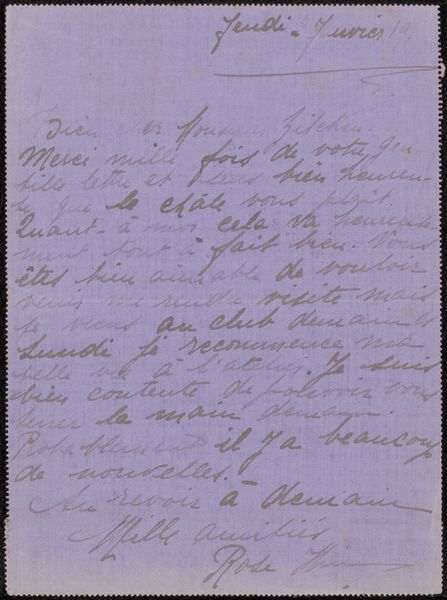 Jeudi - Janvier 19
Bien cher Monsieur Zilcken.
Merci mille fois de votre gen
tille lettre et suis bien heureu-
se que le châle vous plait.
Quant - à moi cela va heureuse
ment tout à fait bien. Vous
êtes bien aimable de vouloir
venir me rendre visite mais
je viens au club demain et
Lundi je recommence ma
belle vie à l'atelier. Je suis
bien contente de pouvoir vous
serrer la main demain.
Probablement il y a beaucoup
de nouvelles.
Au revoir à demain
Mille amitiés
Rose